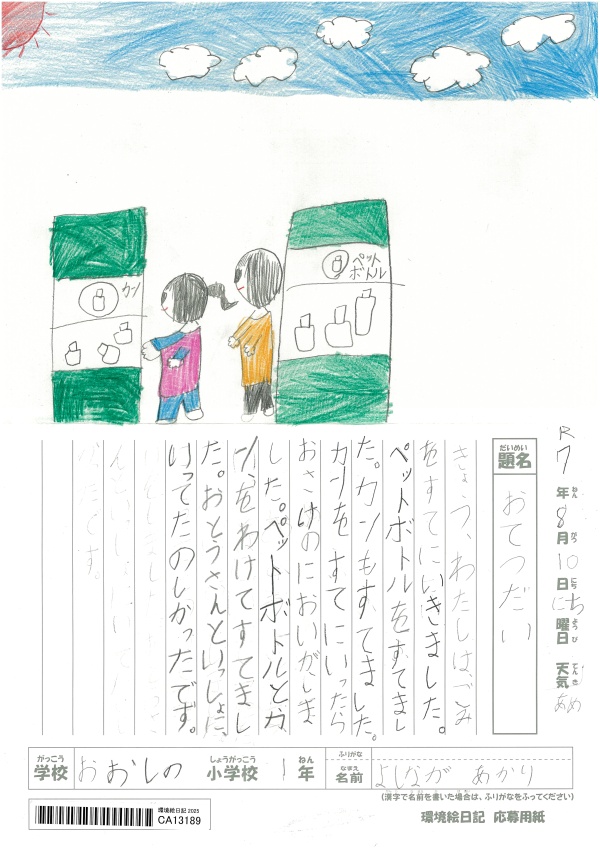 カン
ペット
ボトル
R7年8月10日にち曜日 天気あめ
ねん がつ にち ようび てんき
だいめい
題名
おてつだい
きょう、わたしは、ごみ
をすてにいきました。
ペットボトルをすてまし
た。カンもすてました。
カンをすてにいったら
おさけのにおいがしま
した。ペットボトルとカ
ンをわけてすてまし
た。おとうさんといっしょに、
いってたのしかったです。
がっこう しょうがっこう ねん ふりがな
学校 おおしの 小学校 1年
なまえ
名前 よしなが あかり
(漢字で名前を書いた場合は、ふりがなをふってください)
環境絵日記 2025
CA13189
環境絵日記 応募用紙